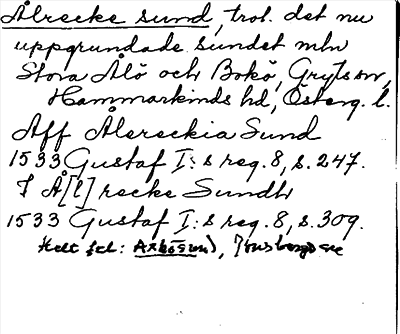 Ålrecke sund, trol. det nu
uppgrundade sundet mln
Stora Ålö och Bokö, Gryts sn,
Hammarkinds hd, Österg. l.
Aff Ålereckia Sund
1533 Gustaf I:s reg. 8, s. 247.
I Å[l]recke Sundh
1533 Gustaf I:s reg. 8, s. 309.
Helt fel: Axhösund, Jonsbergs sn